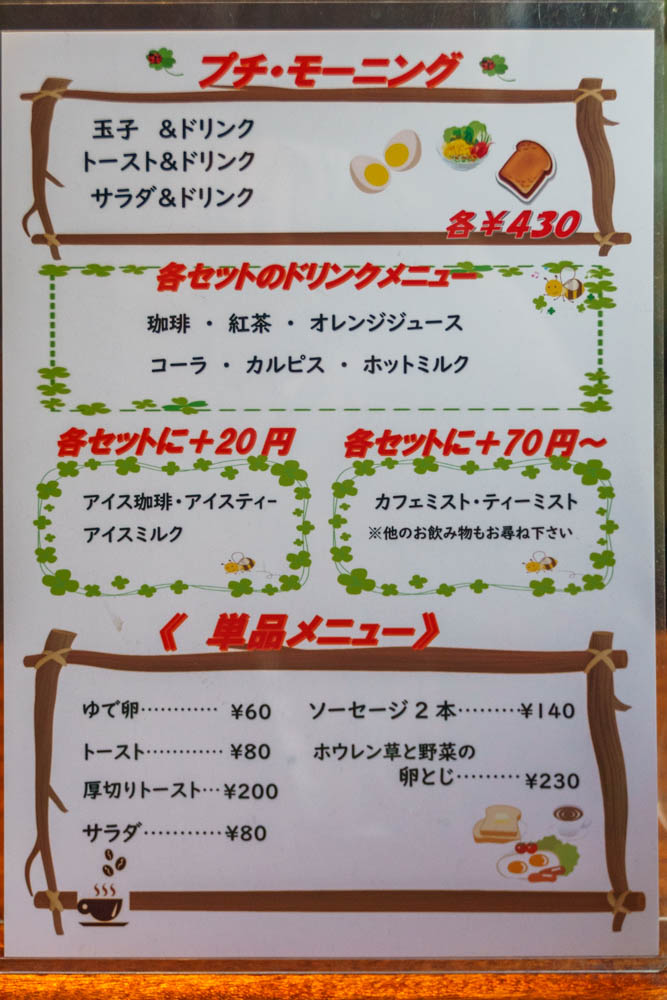 プチ・モーニング
玉子 &ドリンク
トースト&ドリンク
サラダ&ドリンク
各¥430
各セットのドリンクメニュー
珈琲 ・ 紅茶 ・ オレンジジュース
コーラ ・ カルピス ・ ホットミルク
各セットに+20円
アイス珈琲・アイスティー
アイスミルク
各セットに+70円~
カフェミスト・ティーミスト
※他のお飲み物もお尋ね下さい
《 単品メニュー》
ゆで卵…………¥60
トースト…………¥80
厚切りトースト…¥200
サラダ…………¥80
ソーセージ2本………¥140
ホウレン草と野菜の
卵とじ………¥230